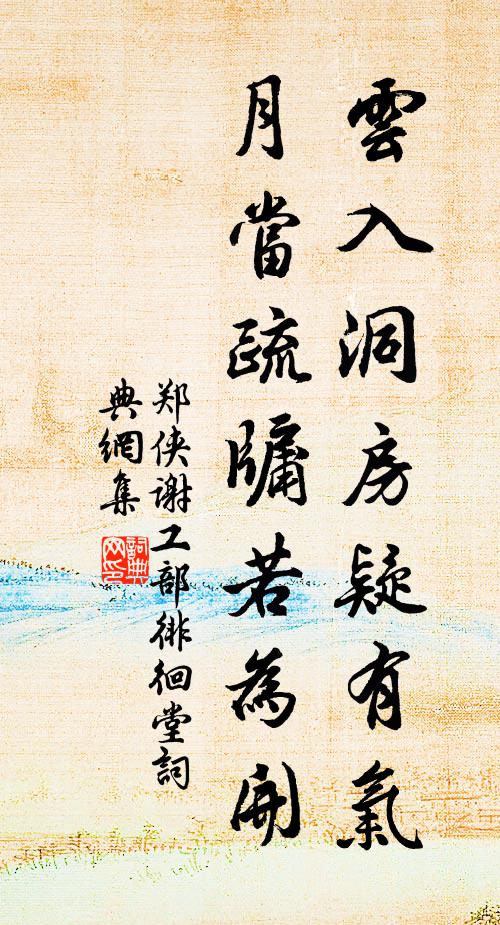 雲入洞房疑有氣
月當疏牖若為開
郑侠谢工部徘徊堂詞
典網集
詞典
网印